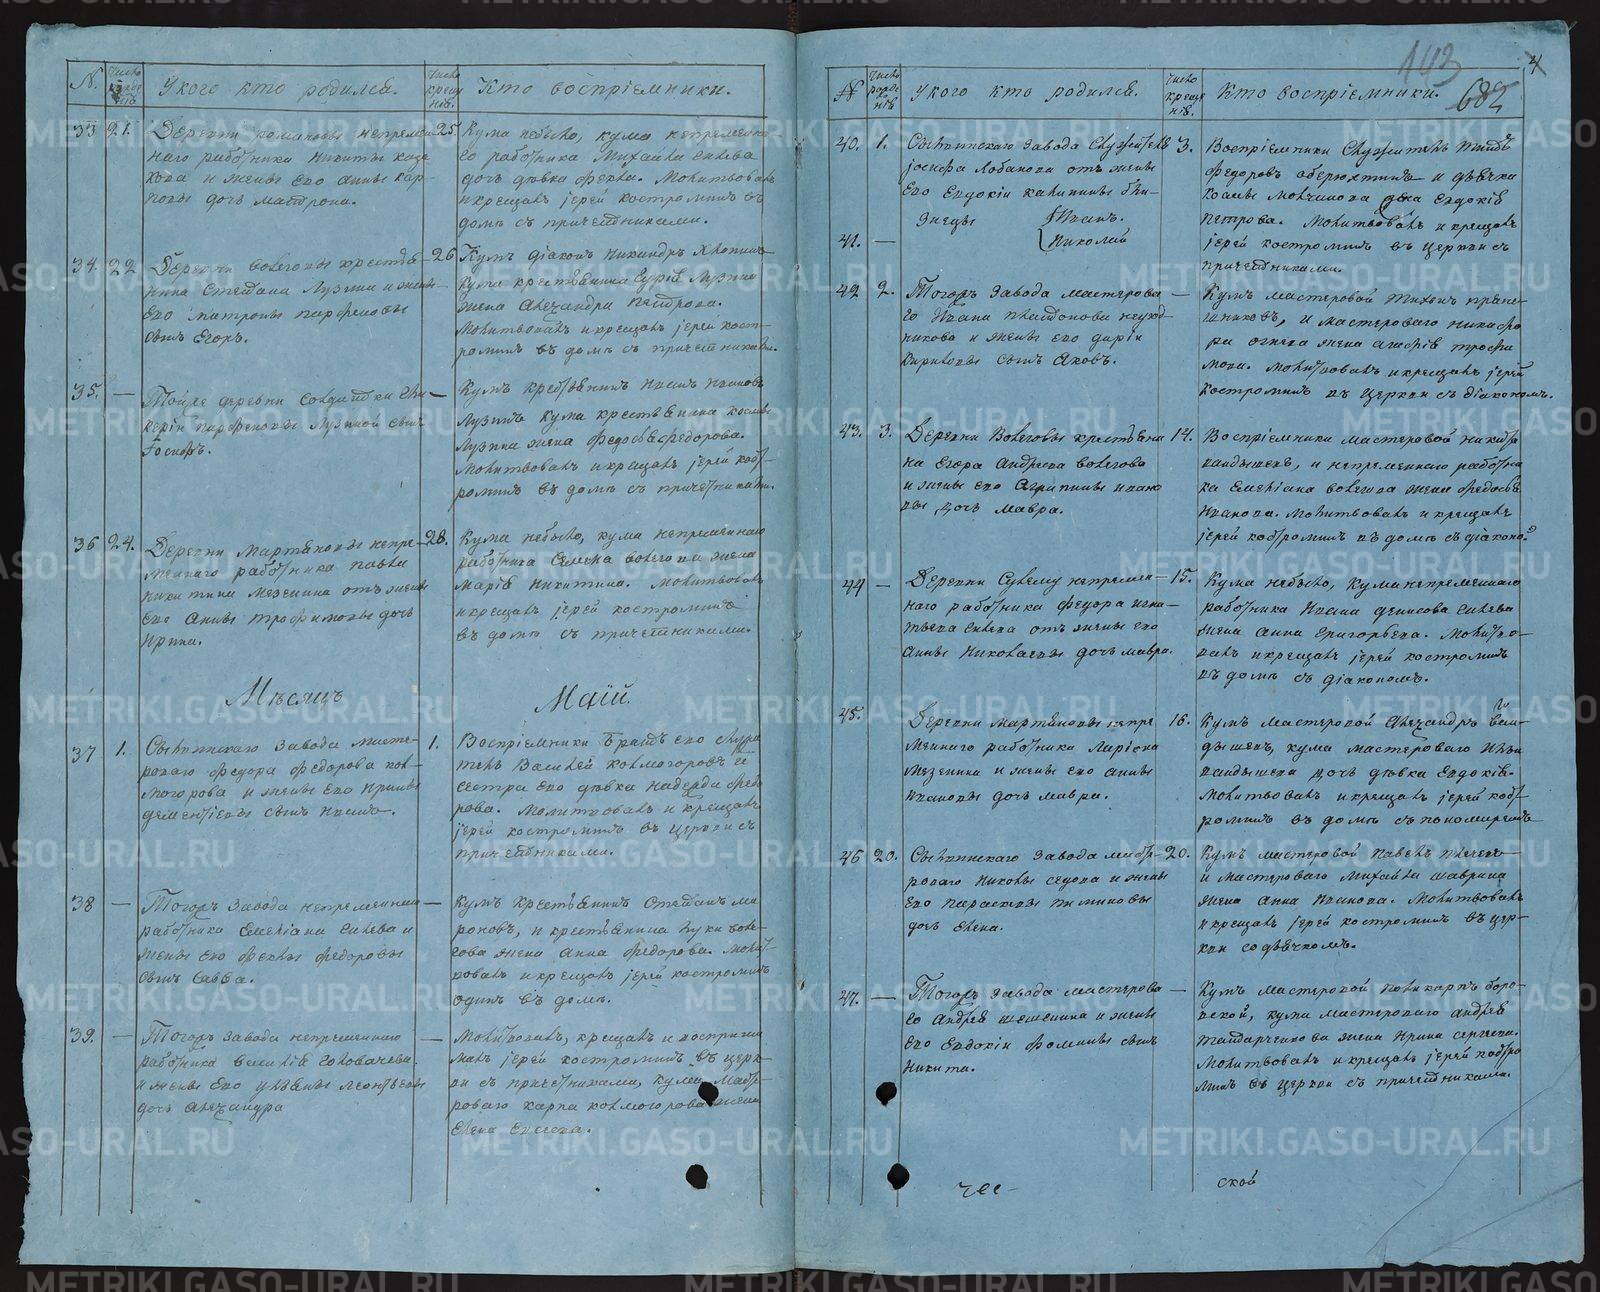 №
Число рожде нія
У кого кто родился.
Число креще нія.
Кто воспріемники.
33 21.
Деревни романовы непремен
наго работника никиты каза
кова и жены его анны кар
повы дочь матрона.
25.
Кума небыло, кума непременна
го работника Михайла
дочь девка Фекла. Молитвовалъ
и крещалъ іерей костроминъ въ
доме съ причетниками.
34. 22
Деревни волеговы крестья
нина Степана Лузина и жены
его матроны парфеновы
сынъ Егоръ.
26
Кумъ діаконъ никандръ
кума крестьянина Лузина
жена Александра Петрова.
Молитвовалъ и крещалъ іерей кост
роминъ въ доме съ причетниками.
35. —
Тойже деревни солдатки
парфеновы Лузиной сынъ
—
Кумъ крестьянинъ иванъ ивановъ
Лузинъ кума крестьянина козмы
Лузина жена Федосья федорова.
Молитвовалъ и крещалъ іерей кост
роминъ въ доме съ причетниками.
36 24.
Деревни Мартьяновы непре
меннаго работника павла
никитина мезенина отъ жены
его Анны трофимовы дочь
Ирина.
28.
Кума небыло, кума непременнаго
работника волегова жена
Марія никитина. Молитвовалъ
и крещалъ іерей костроминъ
въ доме съ причетниками.
Месяцъ Маій.
37 1.
Сылвинскаго завода масте
роваго федора федорова кол
могорова и жены его ирины
дементіевы сынъ иванъ.
1.
Воспріемники братъ его
Василей колмогоровъ и
сестра его девка надежда федо
рова. Молитвовалъ и крещалъ
іерей костроминъ въ церкви съ
причетниками.
38 —
Тогожъ завода непременнаго
работника Емеліана и
жены его Феклы федоровы
сынъ Савва.
—
Кумъ крестьянинъ Степанъ ми
роновъ, и крестьянина луки воле
гова жена Анна федорова. Молит
вовалъ и крещалъ іерей костроминъ
одинъ въ доме.
39. —
Тогожъ завода непременнаго
работника василія головачева
и жены его ульяны леонтьевы
дочь александра
—
Молитвовалъ, крещалъ и восприни
малъ іерей костроминъ въ церк
ви съ причетниками, кума Масте
роваго карпа колмогорова жена
Елена
143
682
№
Число рожде нія
У кого кто родился.
Число креще нія.
Кто воспріемники.
40. 1.
Сылвинскаго завода служителя
іосифа лобанова отъ жены
его Евдокіи калинины бли
знецы { Иванъ.
41. — Николай
3.
Воспріемники служитель
федоровъ оберюхтинъ и девка
козмы молчанова дочь Евдокія
петрова. Молитвовалъ и крещалъ
іерей костроминъ въ церкви съ
причетниками.
42 2.
Тогожъ завода мастерова
го Ивана платонова
и жены его даріи
кириловы сынъ Яковъ.
—
Кумъ мастеровой
и мастероваго никифо
ра огнева жена агафія трофи
мова. Молитвовалъ и крещалъ іерей
костроминъ въ церкви съ діакономъ.
43. 3.
Деревни Волеговы крестьяни
на Егора Андреева волегова
и жены его Агрипины ивано
вы дочь Мавра.
14.
Воспріемники мастеровой
и непременнаго работни
ка Емеліана волегова жена федосья
Иванова. Молитвовалъ и крещалъ
іерей костроминъ въ доме съ діаконо
44 —
Деревни непремен
наго работника федора игна
тьева отъ жены его
Анны Николаевы дочь мавра.
15.
Кума небыло, кума непременнаго
работника Ивана денисова
жена анна григорьева. Молитво
валъ и крещалъ іерей костроминъ
въ доме съ діакономъ.
45.
Деревни мартьяновы непре
меннаго работника Ларіона
мезенина и жены его анны
ивановы дочь мавра.
16.
Кумъ мастеровой александръ
кума мастероваго
дочь девка Евдокія.
Молитвовалъ и крещалъ іерей кост
роминъ въ доме съ пономаремъ
46 20.
Сылвинскаго завода масте
роваго николы седова и жены
его Парасковьи пименовы
дочь Елена.
20.
Кумъ мастеровой Павелъ
и мастероваго михайла шаврина
жена анна иванова. Молитвовалъ
и крещалъ іерей костроминъ въ цер
кви со дьячкомъ.
47. —
Тогожъ завода мастерова
го андрея и жены
его Евдокіи фомины сынъ
никита.
—
Кумъ мастеровой поликарпъ боро
вской, кума мастероваго андрея
жена ирина сергеева.
Молитвовалъ и крещалъ іерей костро
минъ въ церкви съ причетниками.
чес- ской
METRIKI.GASO-URAL.RU